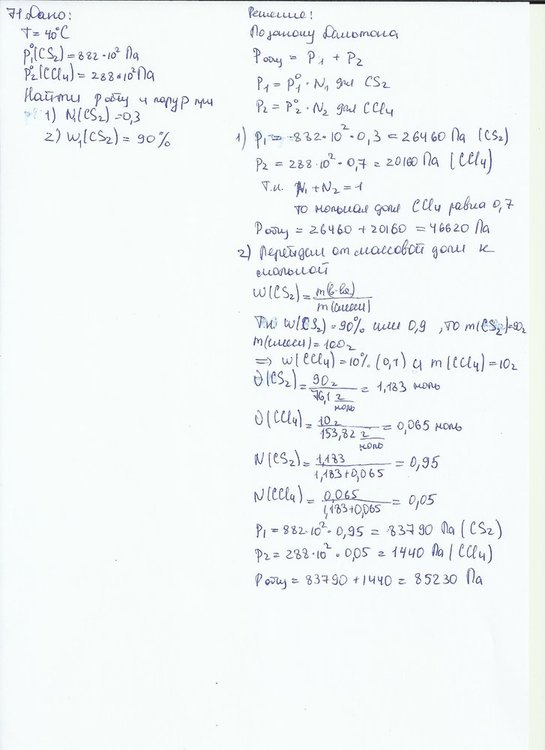 71. Дано:
T = 40°C
P₁°(CS₂) = 882·10² Па
P₂°(CCl₄) = 288·10² Па
Найти Pобщ и парц P при
1) N(CS₂) = 0,3
2) W₁(CS₂) = 90%
Решение:
По закону Дальтона
Pобщ = P₁ + P₂
P₁ = P₁°·N₁ для CS₂
P₂ = P₂°·N₂ для CCl₄
1) P₁ = 882·10²·0,3 = 26460 Па (CS₂)
P₂ = 288·10²·0,7 = 20160 Па (CCl₄)
Т.к. N₁ + N₂ = 1
то мольная доля CCl₄ равна 0,7
Pобщ = 26460 + 20160 = 46620 Па
2) Перейдем от массовой доли к
мольной
W(CS₂) = m(в-ва)/m(смеси)
Т.к. W(CS₂) = 90% или 0,9, то m(CS₂) = 90г
m(смеси) = 100г
=> W(CCl₄) = 10% (0,1) и m(CCl₄) = 10г
υ(CS₂) = 90г/76,1 г/моль = 1,183 моль
υ(CCl₄) = 10г/153,82 г/моль = 0,065 моль
N(CS₂) = 1,183/1,183+0,065 = 0,95
N(CCl₄) = 0,065/1,183+0,065 = 0,05
P₁ = 882·10²·0,95 = 83790 Па (CS₂)
P₂ = 288·10²·0,05 = 1440 Па (CCl₄)
Pобщ = 83790 + 1440 = 85230 Па